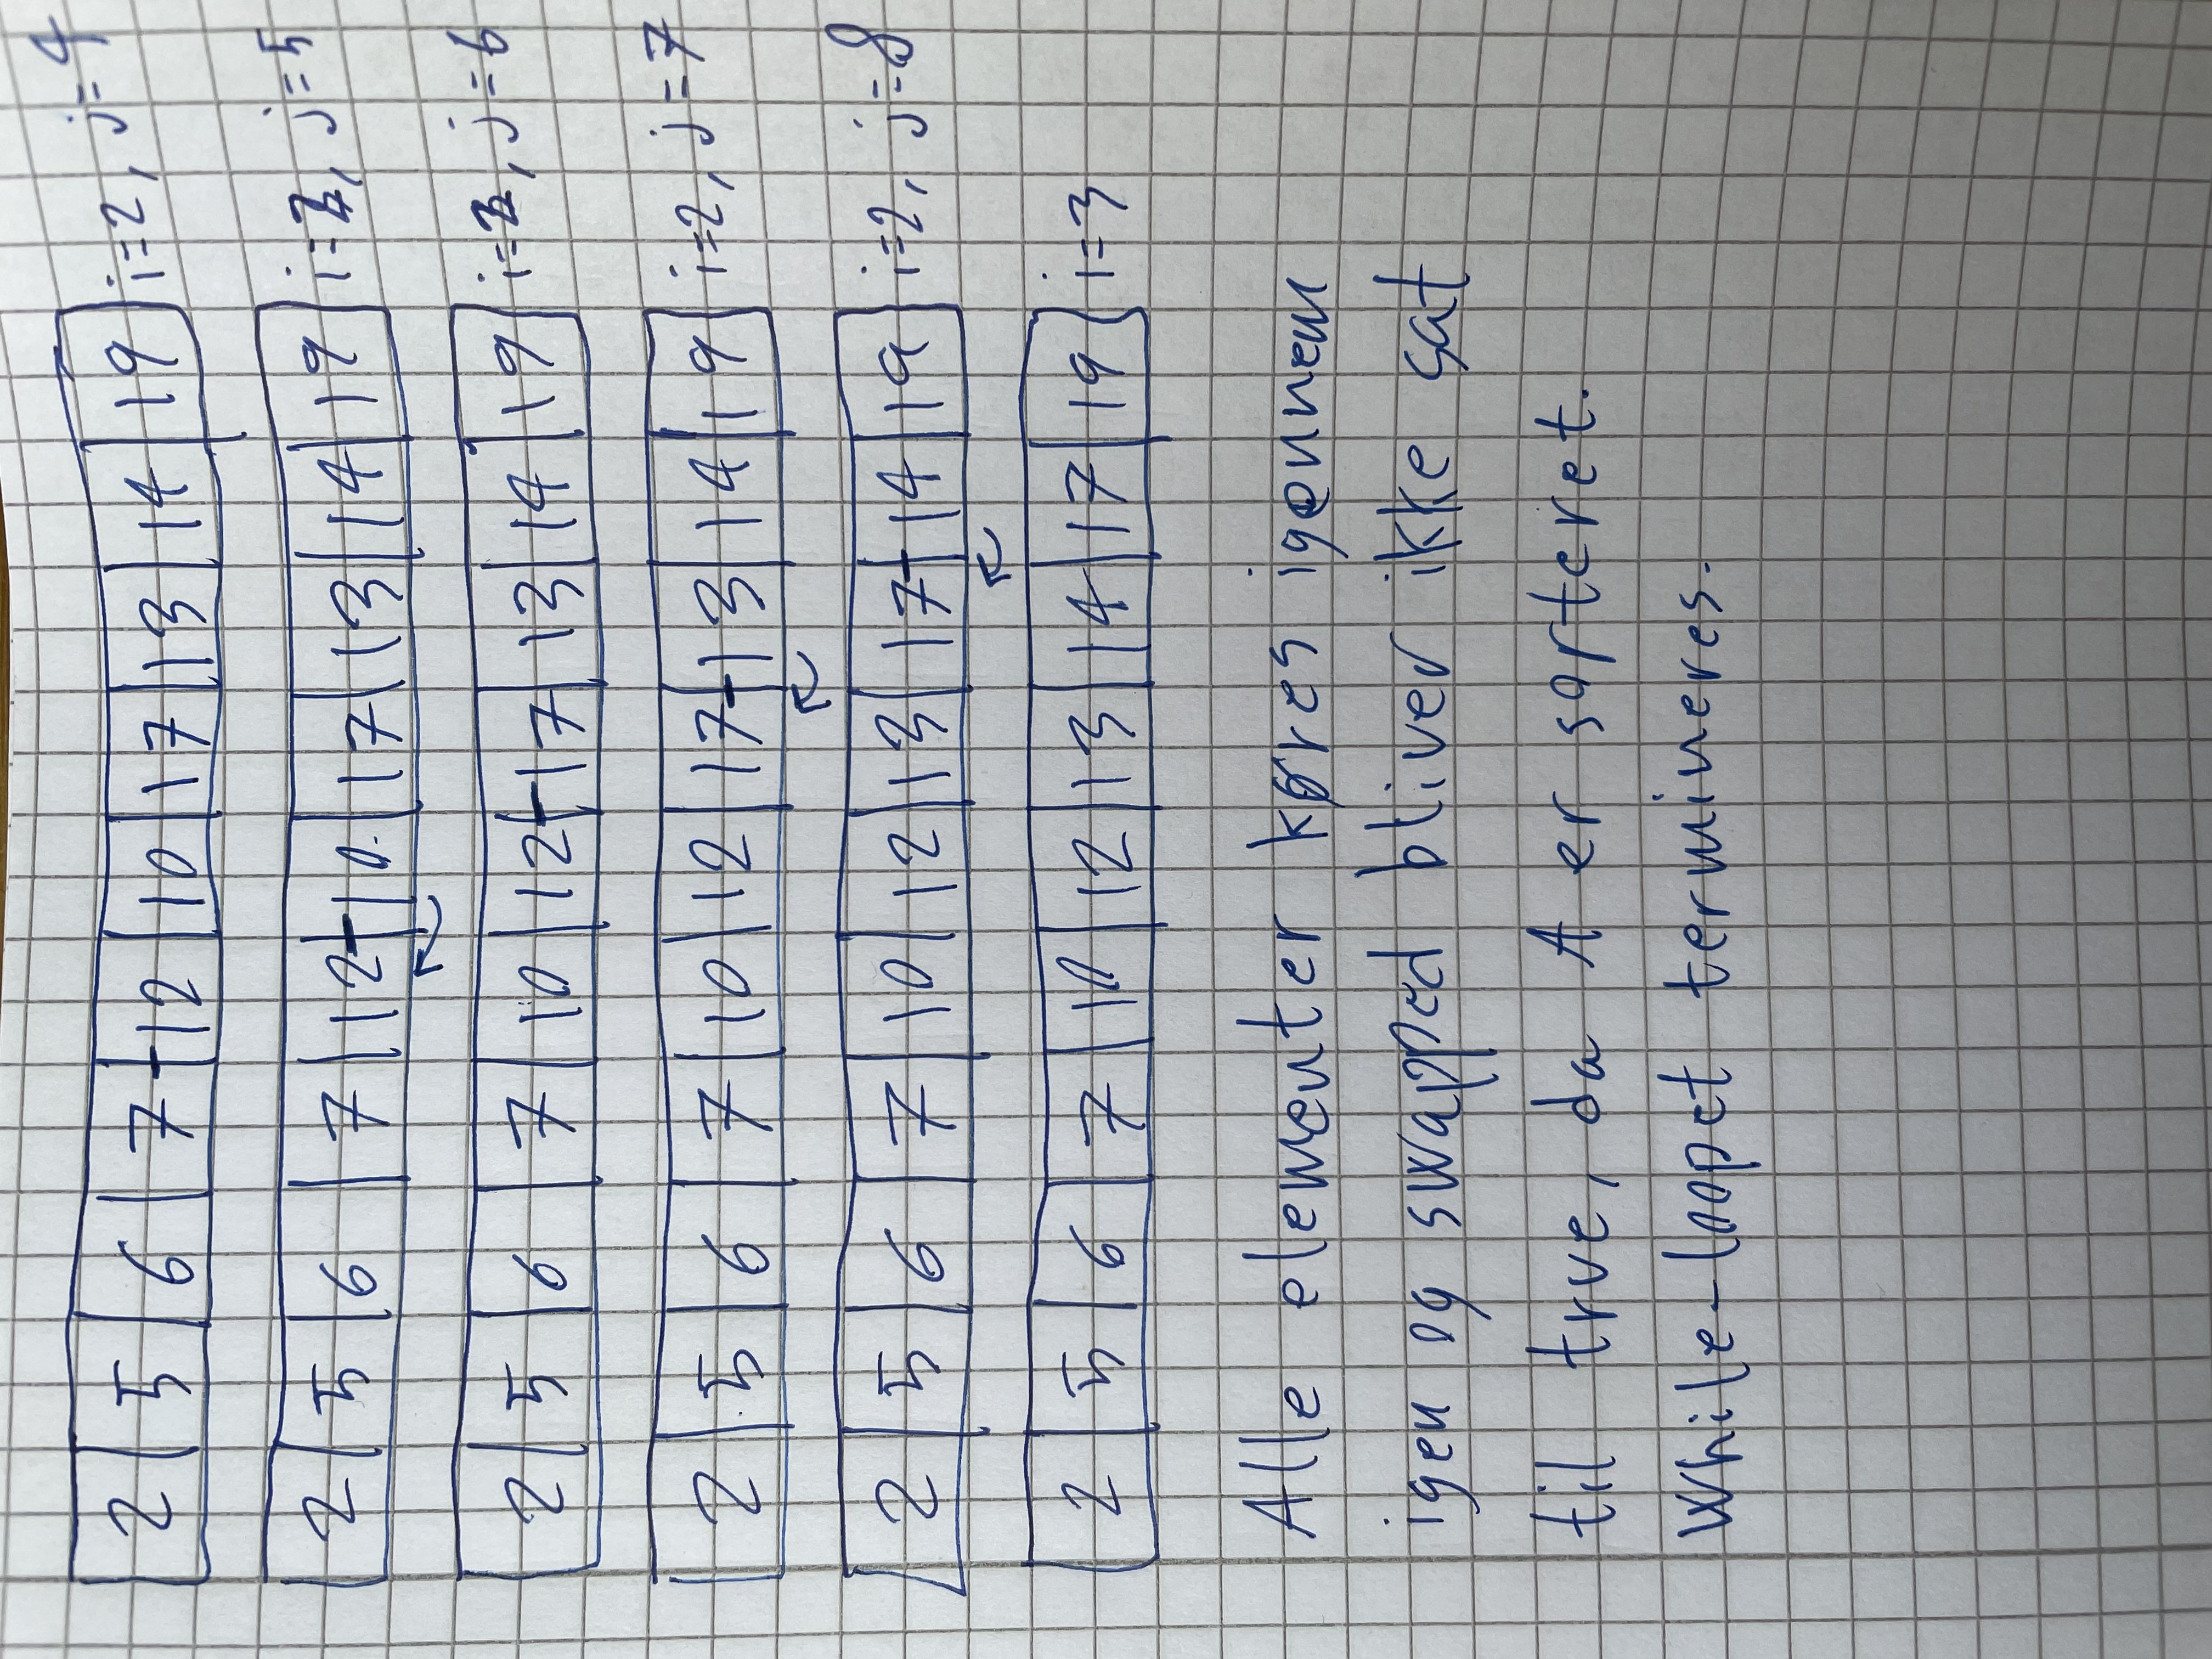 2 5 6 7 12 10 17 13 14 19 i=2, j=4
2 5 6 7 12 10 17 13 14 19 i=2, j=5
2 5 6 7 10 12 17 13 14 19 i=2, j=6
2 5 6 7 10 12 17 13 14 19 i=2, j=7
2 5 6 7 10 12 13 17 14 19 i=2, j=8
2 5 6 7 10 12 13 14 17 19 i=3
Alle elementer køres igennem
igen og swapped bliver ikke sat
til true, da A er sorteret.
While-loopet termineres.